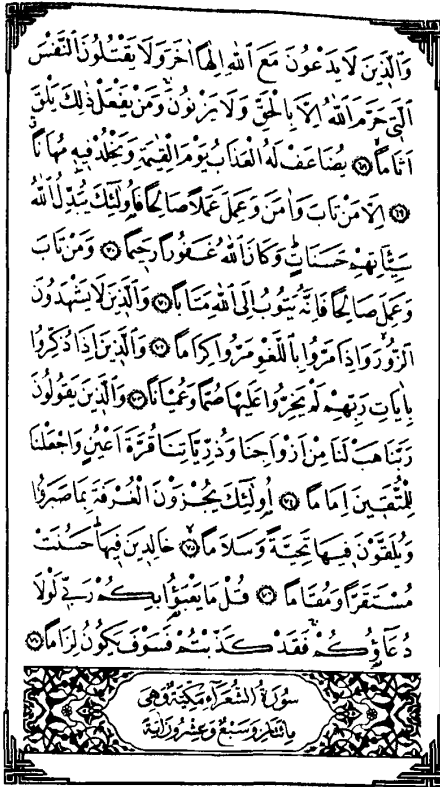 وَالَّذِينَ لَا يَدْعُونَ مَعَ اللّٰهِ اِلٰهًا اٰخَرَ وَلَا يَقْتُلُونَ النَّفْسَ
الَّتِي حَرَّمَ اللّٰهُ اِلَّا بِالْحَقِّ وَلَا يَزْنُونَۚ وَمَنْ يَفْعَلْ ذٰلِكَ يَلْقَ
اَثَامًاۙ ﴿٦٨﴾ يُضَاعَفْ لَهُ الْعَذَابُ يَوْمَ الْقِيٰمَةِ وَيَخْلُدْ فِيهِ مُهَانًاۗ
﴿٦٩﴾ اِلَّا مَنْ تَابَ وَاٰمَنَ وَعَمِلَ عَمَلًا صَالِحًا فَاُولٰٓئِكَ يُبَدِّلُ اللّٰهُ
سَيِّاٰتِهِمْ حَسَنَاتٍۗ وَكَانَ اللّٰهُ غَفُورًا رَحِيمًا ﴿٧٠﴾ وَمَنْ تَابَ
وَعَمِلَ صَالِحًا فَاِنَّهُ يَتُوبُ اِلَى اللّٰهِ مَتَابًا ﴿٧١﴾ وَالَّذِينَ لَا يَشْهَدُونَ
الزُّورَۙ وَاِذَا مَرُّوا بِاللَّغْوِ مَرُّوا كِرَامًا ﴿٧٢﴾ وَالَّذِينَ اِذَا ذُكِّرُوا
بِاٰيَاتِ رَبِّهِمْ لَمْ يَخِرُّوا عَلَيْهَا صُمًّا وَعُمْيَانًا ﴿٧٣﴾ وَالَّذِينَ يَقُولُونَ
رَبَّنَا هَبْ لَنَا مِنْ اَزْوَاجِنَا وَذُرِّيَّاتِنَا قُرَّةَ اَعْيُنٍ وَاجْعَلْنَا
لِلْمُتَّقِينَ اِمَامًا ﴿٧٤﴾ اُولٰٓئِكَ يُجْزَوْنَ الْغُرْفَةَ بِمَا صَبَرُوا
وَيُلَقَّوْنَ فِيهَا تَحِيَّةً وَسَلَامًاۙ ﴿٧٥﴾ خَالِدِينَ فِيهَاۜ حَسُنَتْ
مُسْتَقَرًّا وَمُقَامًا ﴿٧٦﴾ قُلْ مَا يَعْبَؤُا بِكُمْ رَبِّي لَوْلَا
دُعَاؤُكُمْۚ فَقَدْ كَذَّبْتُمْ فَسَوْفَ يَكُونُ لِزَامًا ﴿٧٧﴾
سُورَةُ الشُّعَرَاءِ مَكِّيَّةٌ وَهِيَ
مِائَتَانِ وَسَبْعٌ وَعِشْرُونَ اٰيَةً